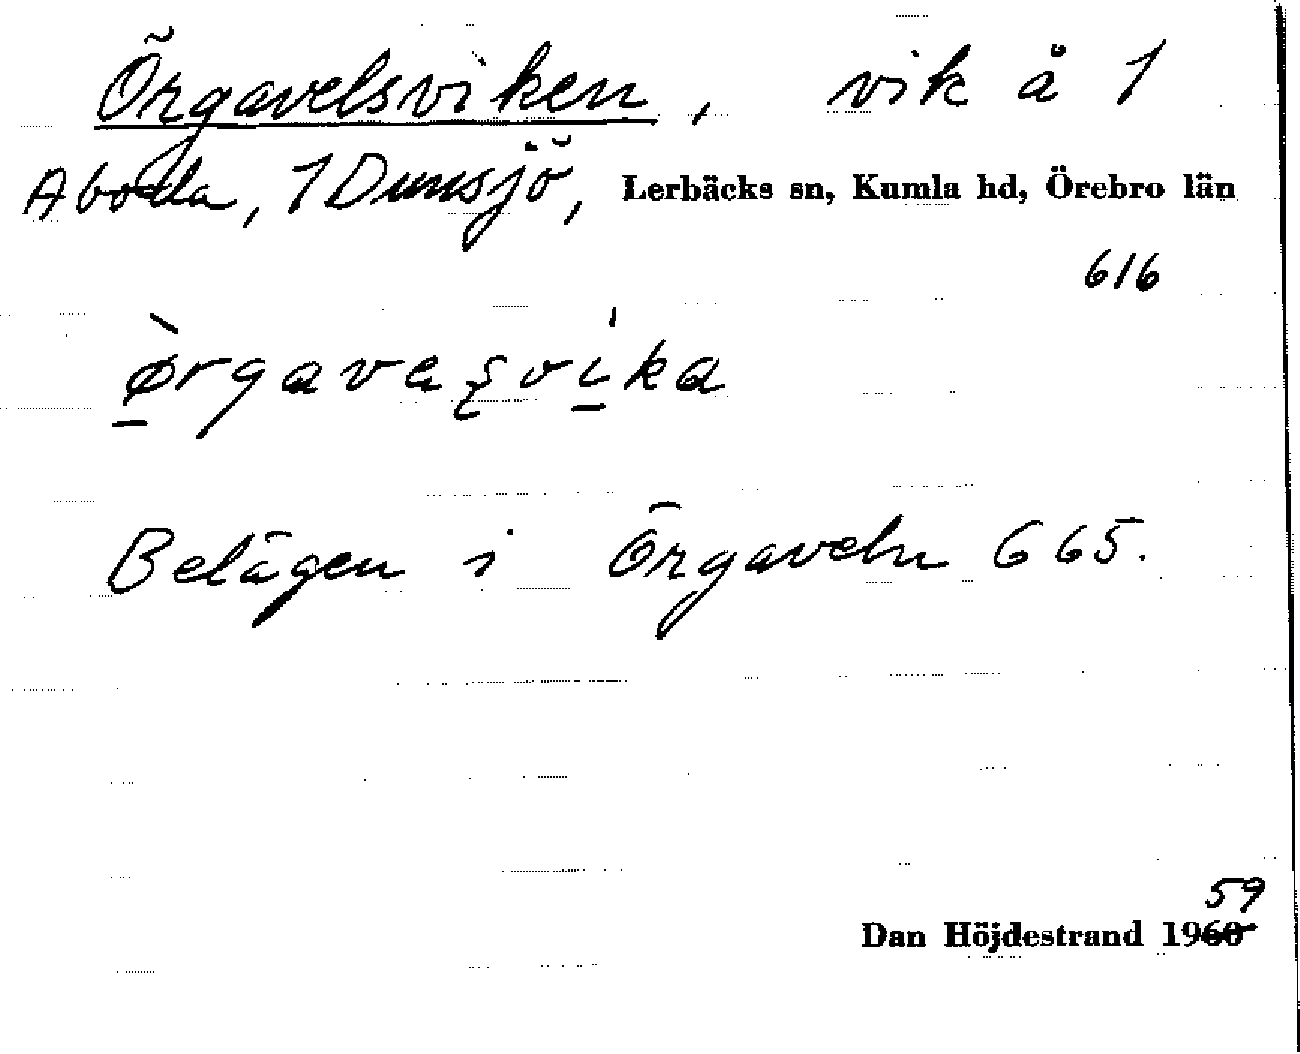 Örgavelsviken, vik å 1
Aboda, 1 Dunsjö, Lerbäcks sn, Kumla hd, Örebro län
616
ø̀rgavaʂvíka
Belägen i Örgaveln 665.
59
Dan Höjdestrand 1960